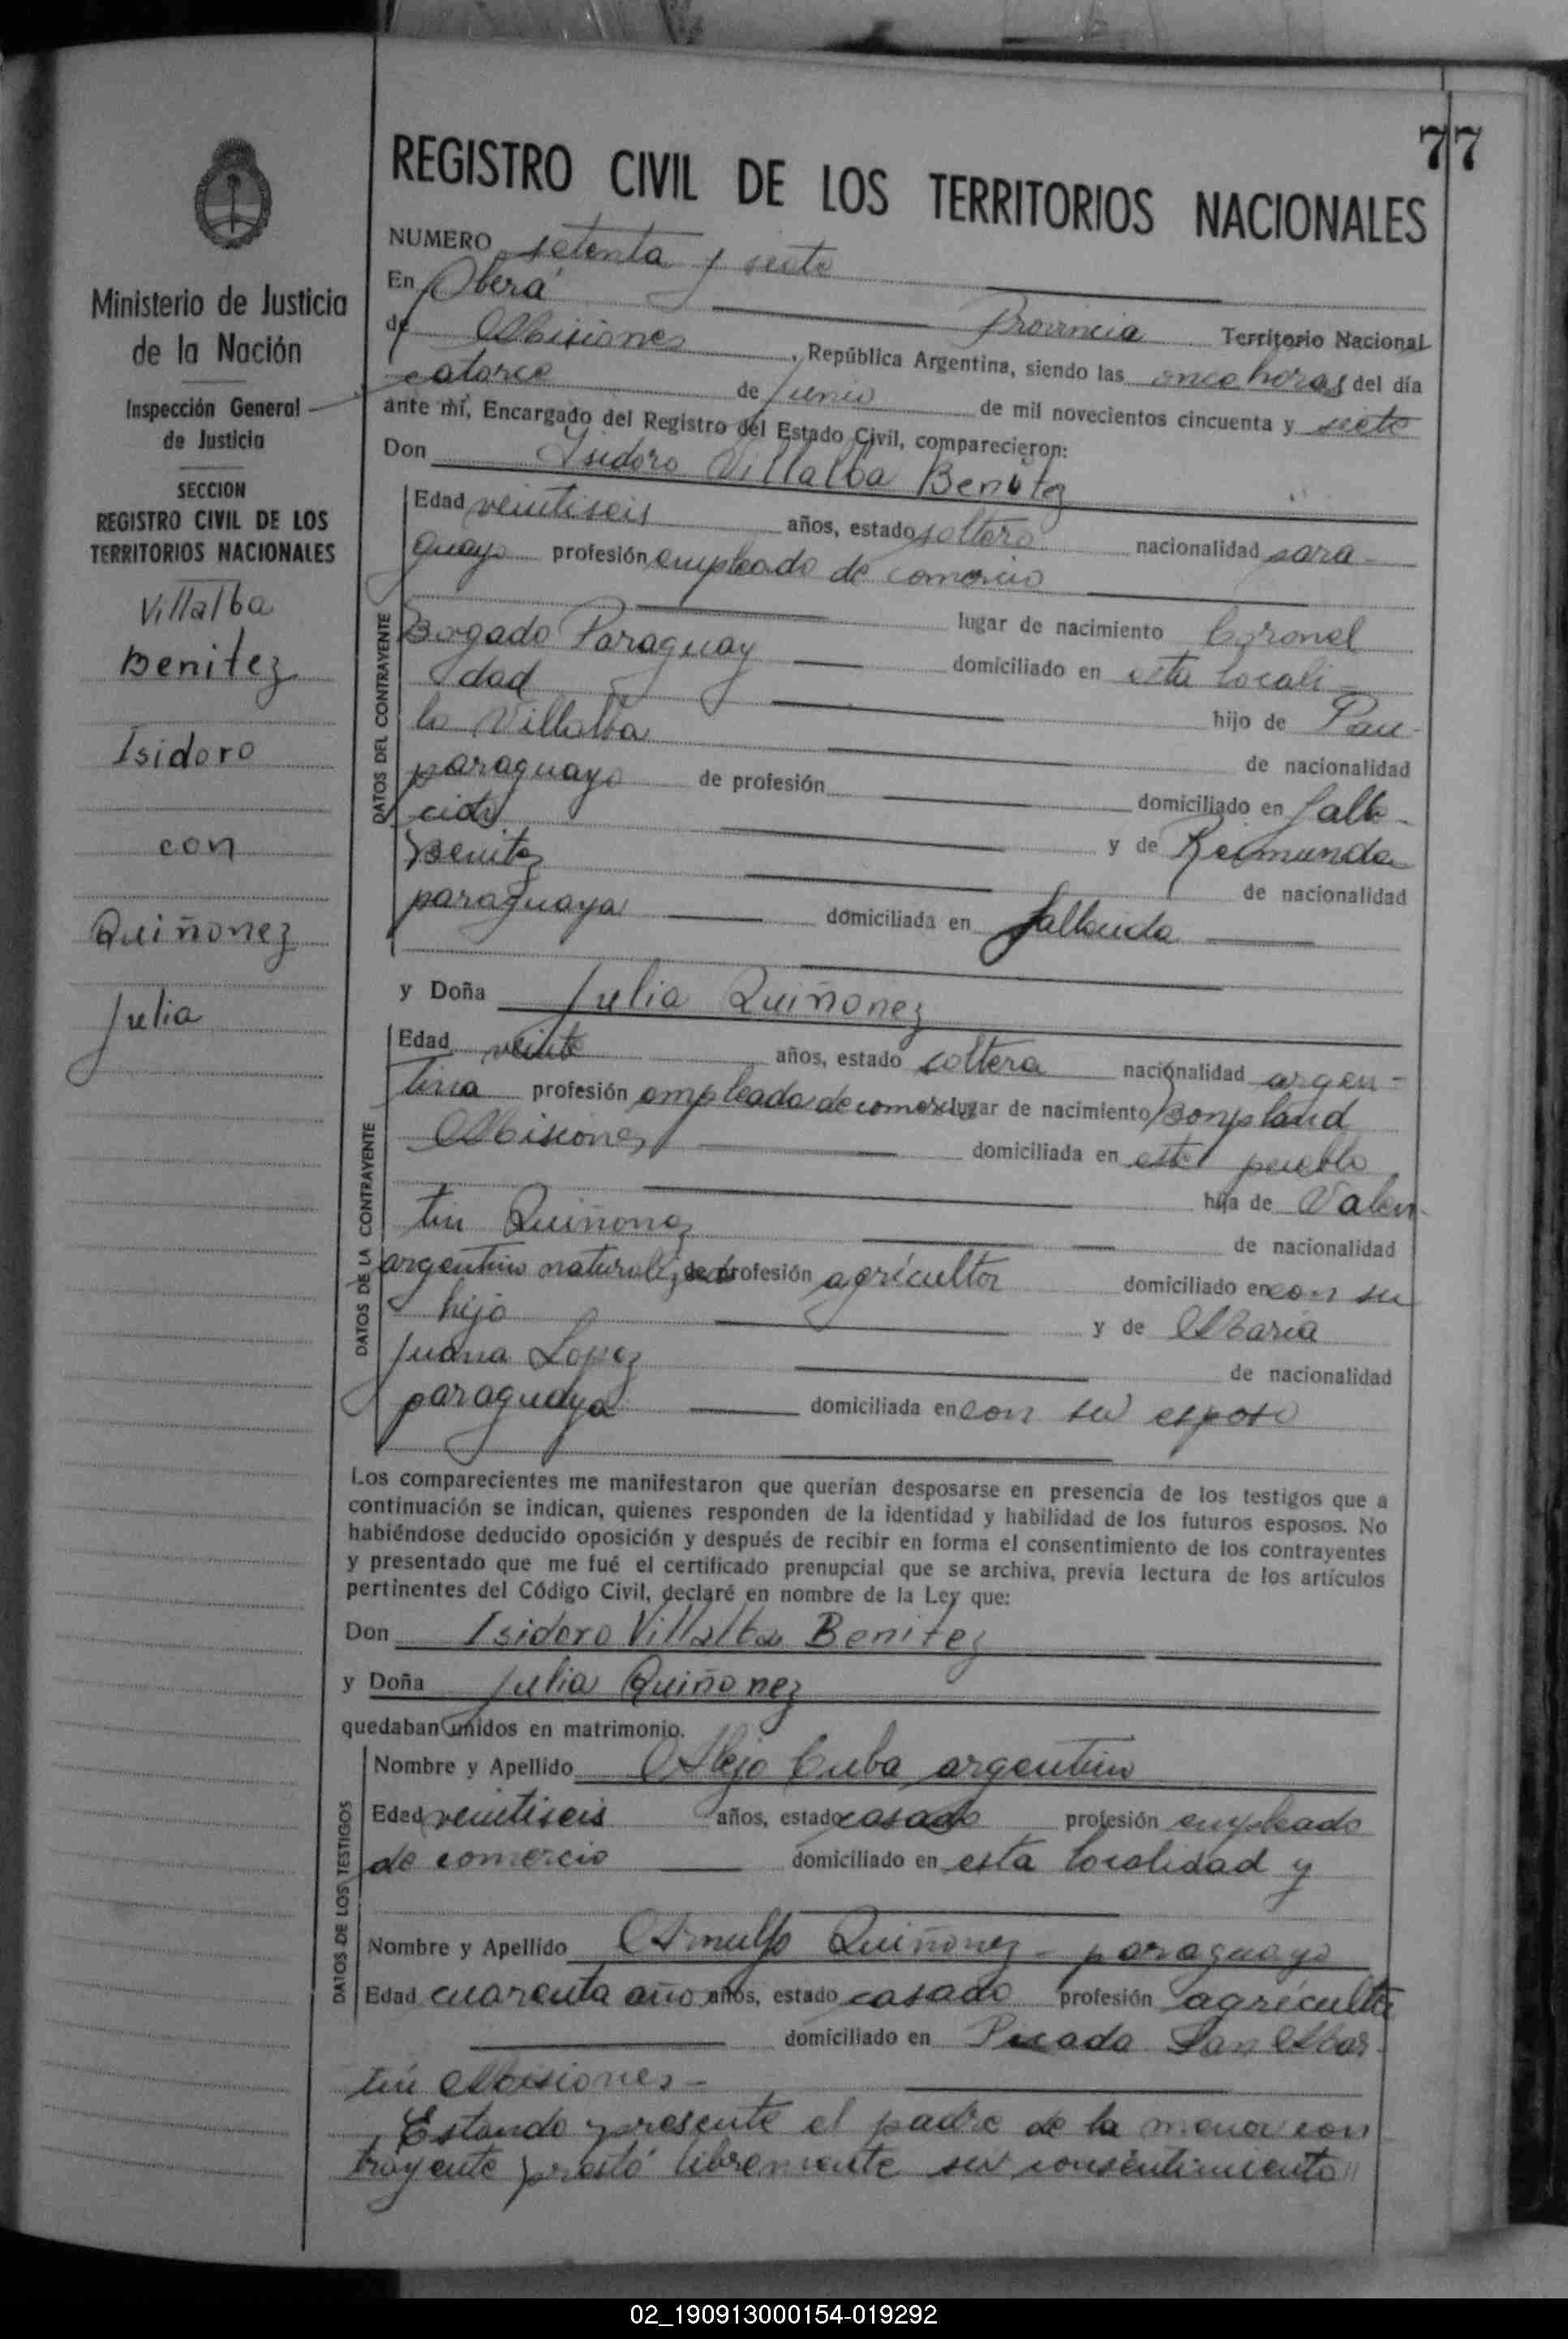 77
REGISTRO CIVIL DE LOS TERRITORIOS NACIONALES
Ministerio de Justicia
de la Nación
Inspección General
de Justicia
SECCION
REGISTRO CIVIL DE LOS
TERRITORIOS NACIONALES
Villalba
Benitez
Isidoro
con
Quiñonez
Julia
NUMERO setenta y siete
En Oberá
Provincia Territorio Nacional
de Misiones, República Argentina, siendo las once horas del día
catorce de junio de mil novecientos cincuenta y siete
ante mí, Encargado del Registro del Estado Civil, comparecieron:
Don Isidoro Villalba Benitez
DATOS DEL CONTRAYENTE
Edad veintiseis años, estado soltero nacionalidad para-
guayo profesión empleado de comercio
lugar de nacimiento Coronel
Bogado Paraguay domiciliado en esta locali-
dad hijo de Pau-
lo Villalba de nacionalidad
paraguayo de profesión domiciliado en falle-
cido y de Reimunda
Benitez de nacionalidad
paraguaya domiciliada en fallecida
y Doña Julia Quiñonez
DATOS DE LA CONTRAYENTE
Edad veinte años, estado soltera nacionalidad argen-
tina profesión empleada de comercio lugar de nacimiento Bonpland
Misiones domiciliada en este pueblo
hija de Valen-
tin Quiñonez de nacionalidad
argentino naturalizado de profesión agricultor domiciliado en con su
hija y de Maria
Juana Lopez de nacionalidad
paraguaya domiciliada en con su esposo
Los comparecientes me manifestaron que querían desposarse en presencia de los testigos que a
continuación se indican, quienes responden de la identidad y habilidad de los futuros esposos. No
habiéndose deducido oposición y después de recibir en forma el consentimiento de los contrayentes
y presentado que me fué el certificado prenupcial que se archiva, previa lectura de los artículos
pertinentes del Código Civil, declaré en nombre de la Ley que:
Don Isidoro Villalba Benitez
y Doña Julia Quiñonez
quedaban unidos en matrimonio.
DATOS DE LOS TESTIGOS
Nombre y Apellido Alejo Cuba argentino
Edad veintiseis años, estado casado profesión empleado
de comercio domiciliado en esta localidad y
Nombre y Apellido Arnulfo Quiñonez - paraguayo
Edad cuarenta año años, estado casado profesión agricultor
domiciliado en Picada San Mar-
tín Misiones -
Estando presente el padre de la menor con
trayente prestó libremente su consentimiento//
02_190913000154-019292